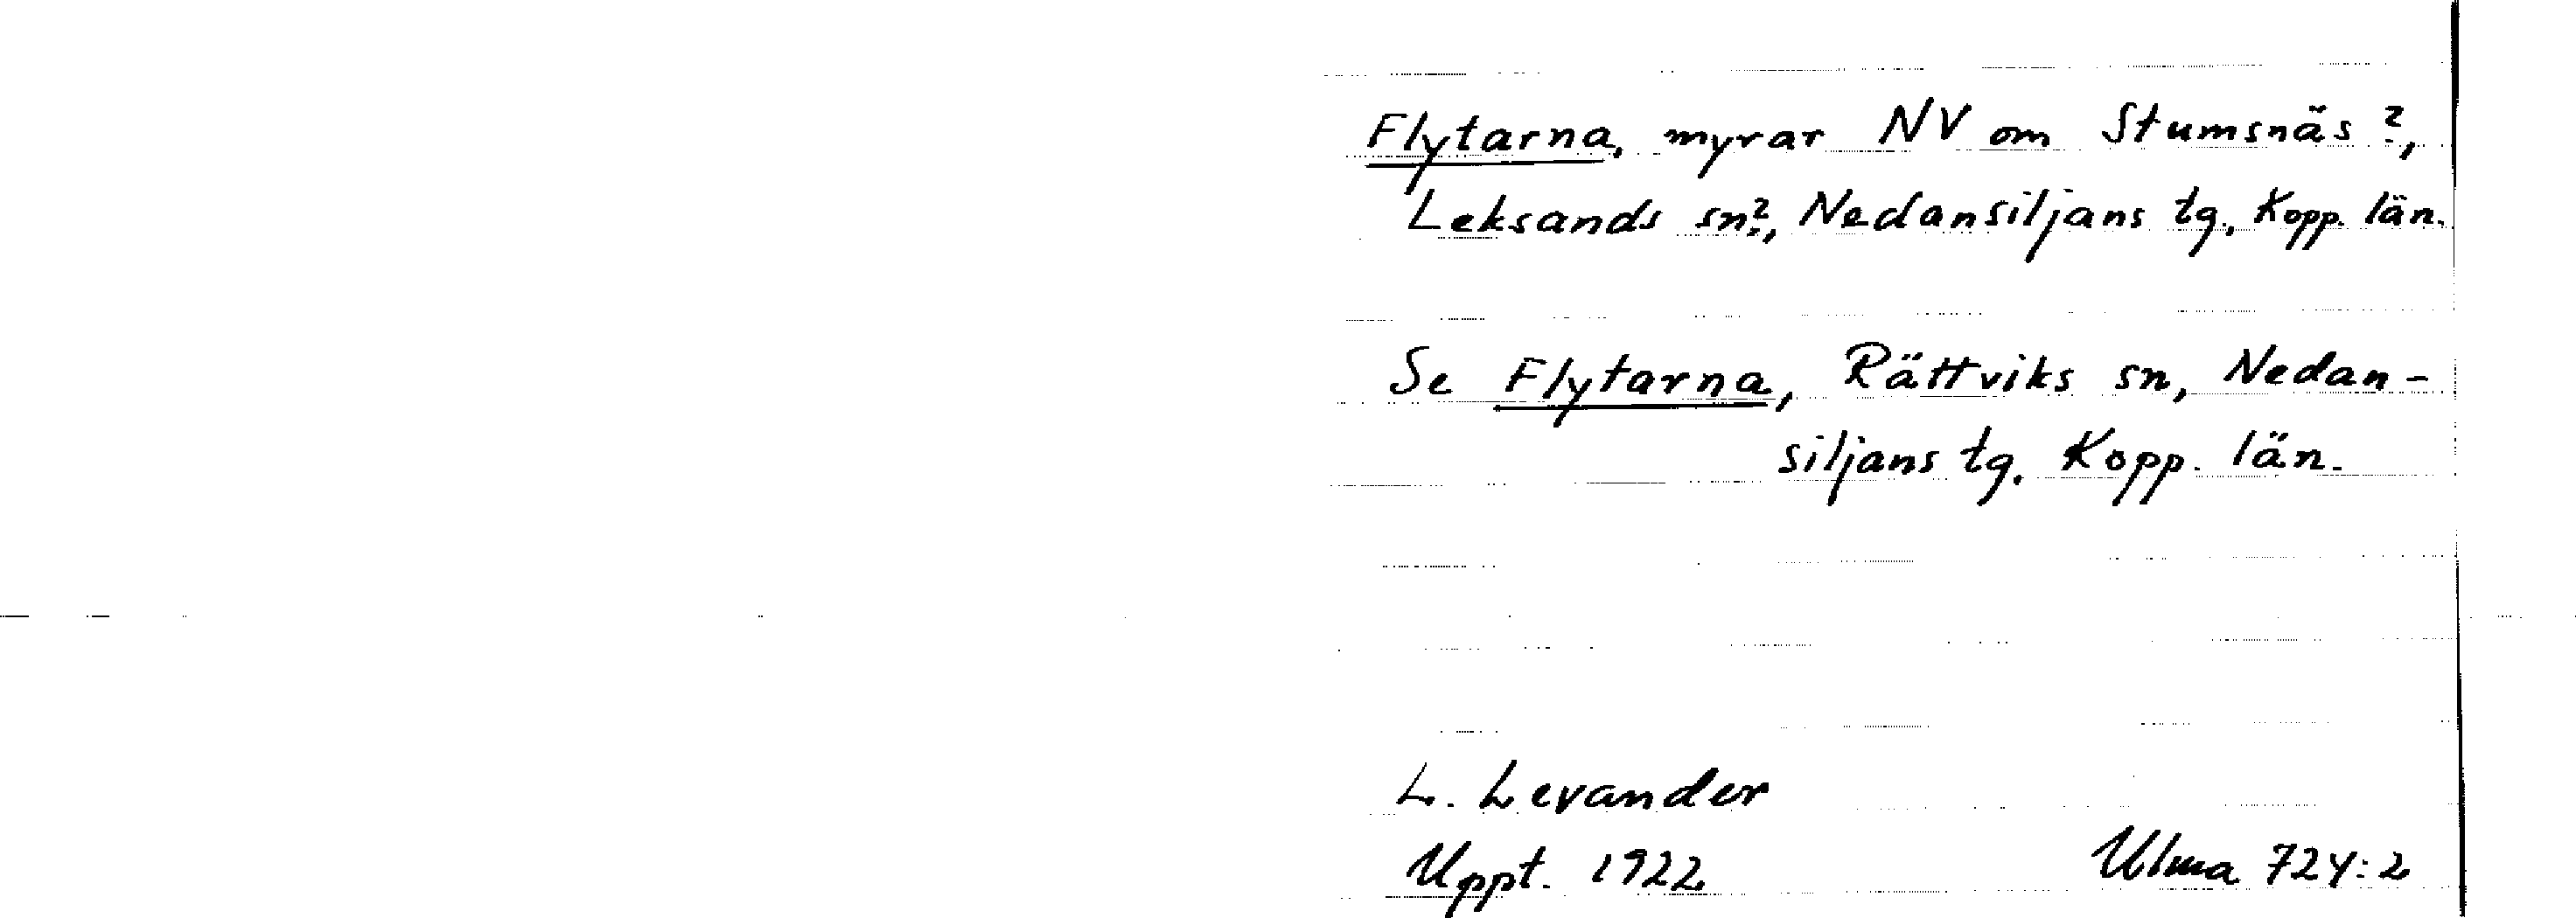 Flytarna, myrar NV om Stumsnäs?,
Leksands sn?, Nedansiljans tg., Kopp. län.
Se Flytarna, Rättviks sn, Nedan-
siljans tg. Kopp. län.
L. Levander
Uppt. 1922 Ulma 724:2